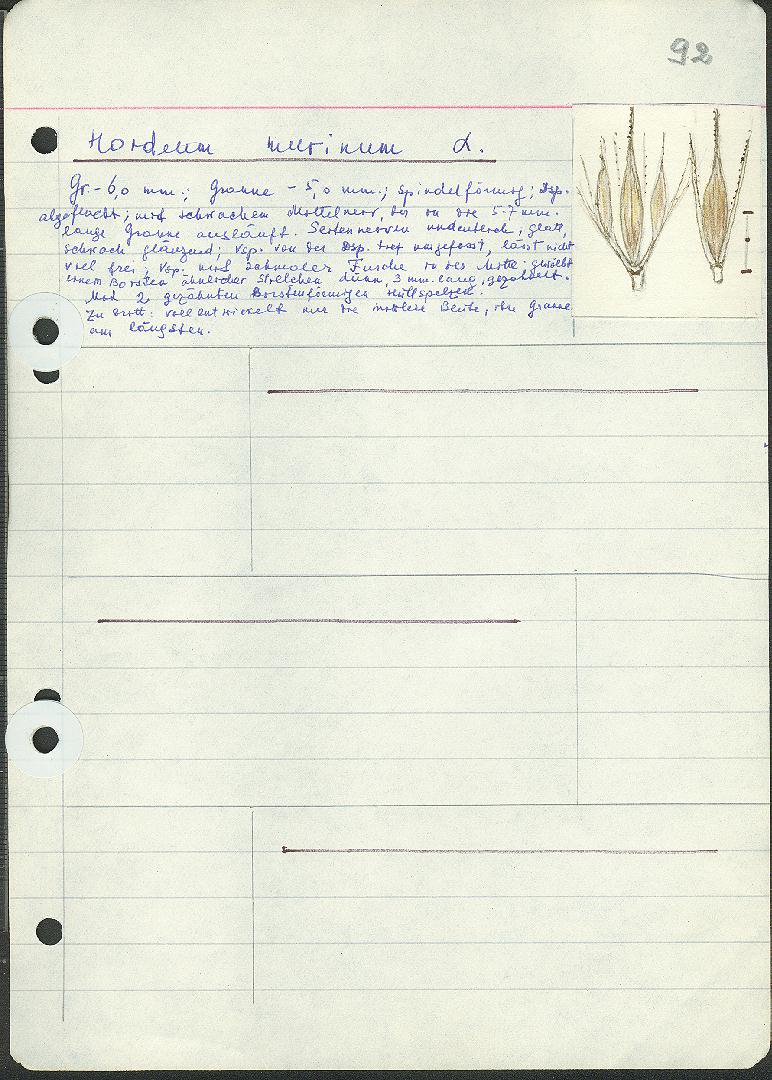 92
Hordeum murinum L.
Gr. - 6,0 mm.; Granne - 5,0 mm.; spindelförmig; Dsp.
abgeflacht; mit schwachem Mittelnerv, der in die 5-7 mm.
lange Granne ausläuft. Seitennerven undeutlich, glatt,
schwach glänzend; Vsp. von der Dsp. tief eingefasst, lässt nicht
viel frei; Vsp. mit schmaler Furche in der Mitte.
einem Borsten ähnlicher Stielchen dünn, 3 mm. lang, gezähnelt.
Mit 2 gezähnten Borstenförmigen Hüllspelzen.
Zu dritt: voll entwickelt nur die mittlere Blüte, ihre Granne
am längsten.